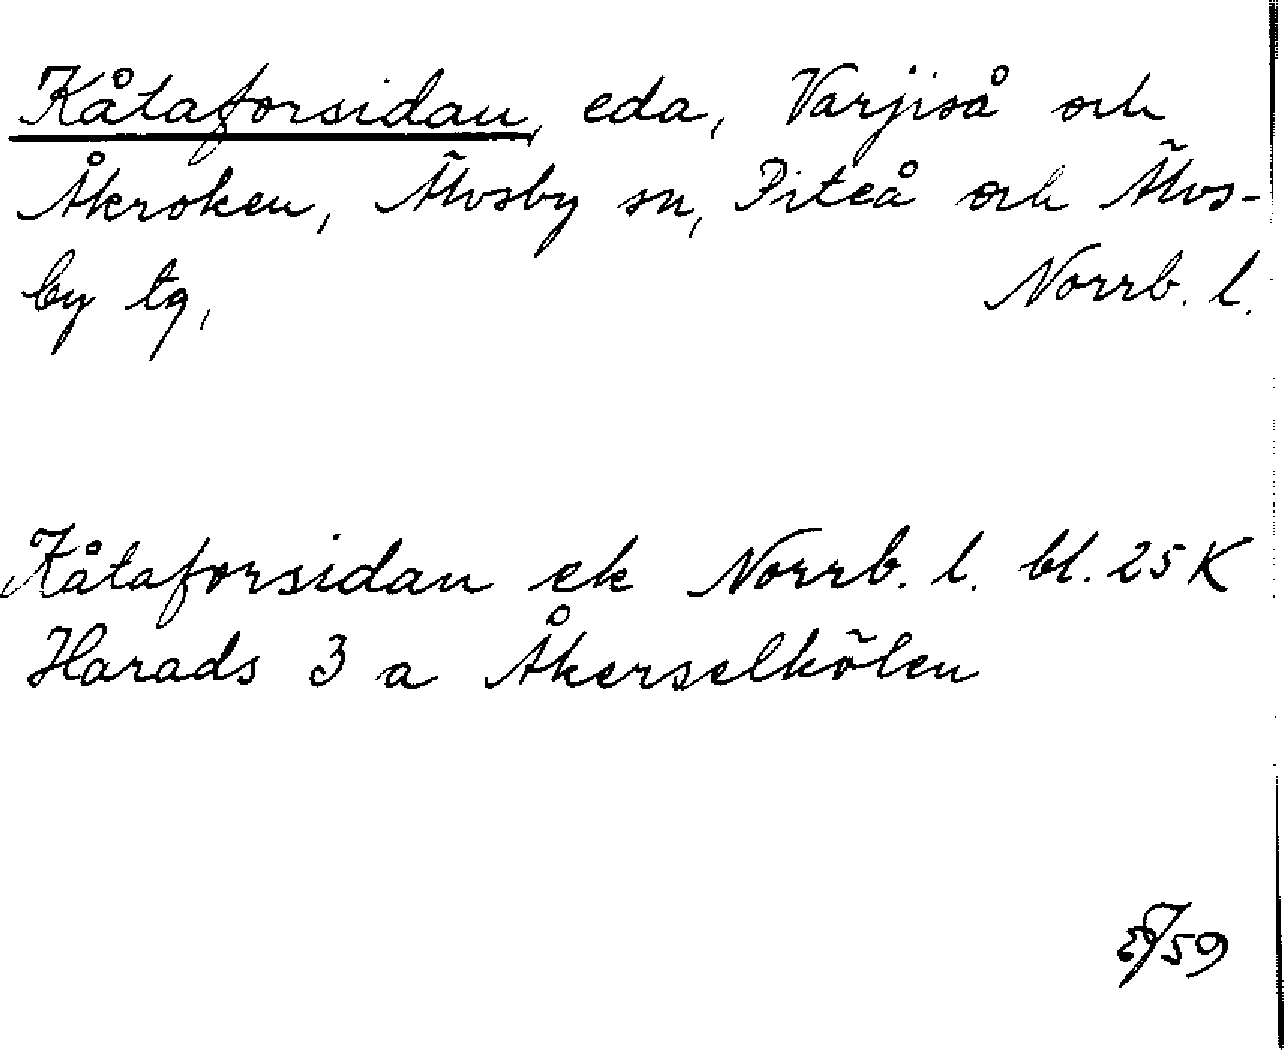 Kåtaforsidan, eda, Varjiså och
Åkroken, Älvsby sn, Piteå och Älvs-
by tg, Norrb. l.
Kåtaforsidan ek Norrb. l. bl. 25 K
Harads 3 a Åkerselkölen